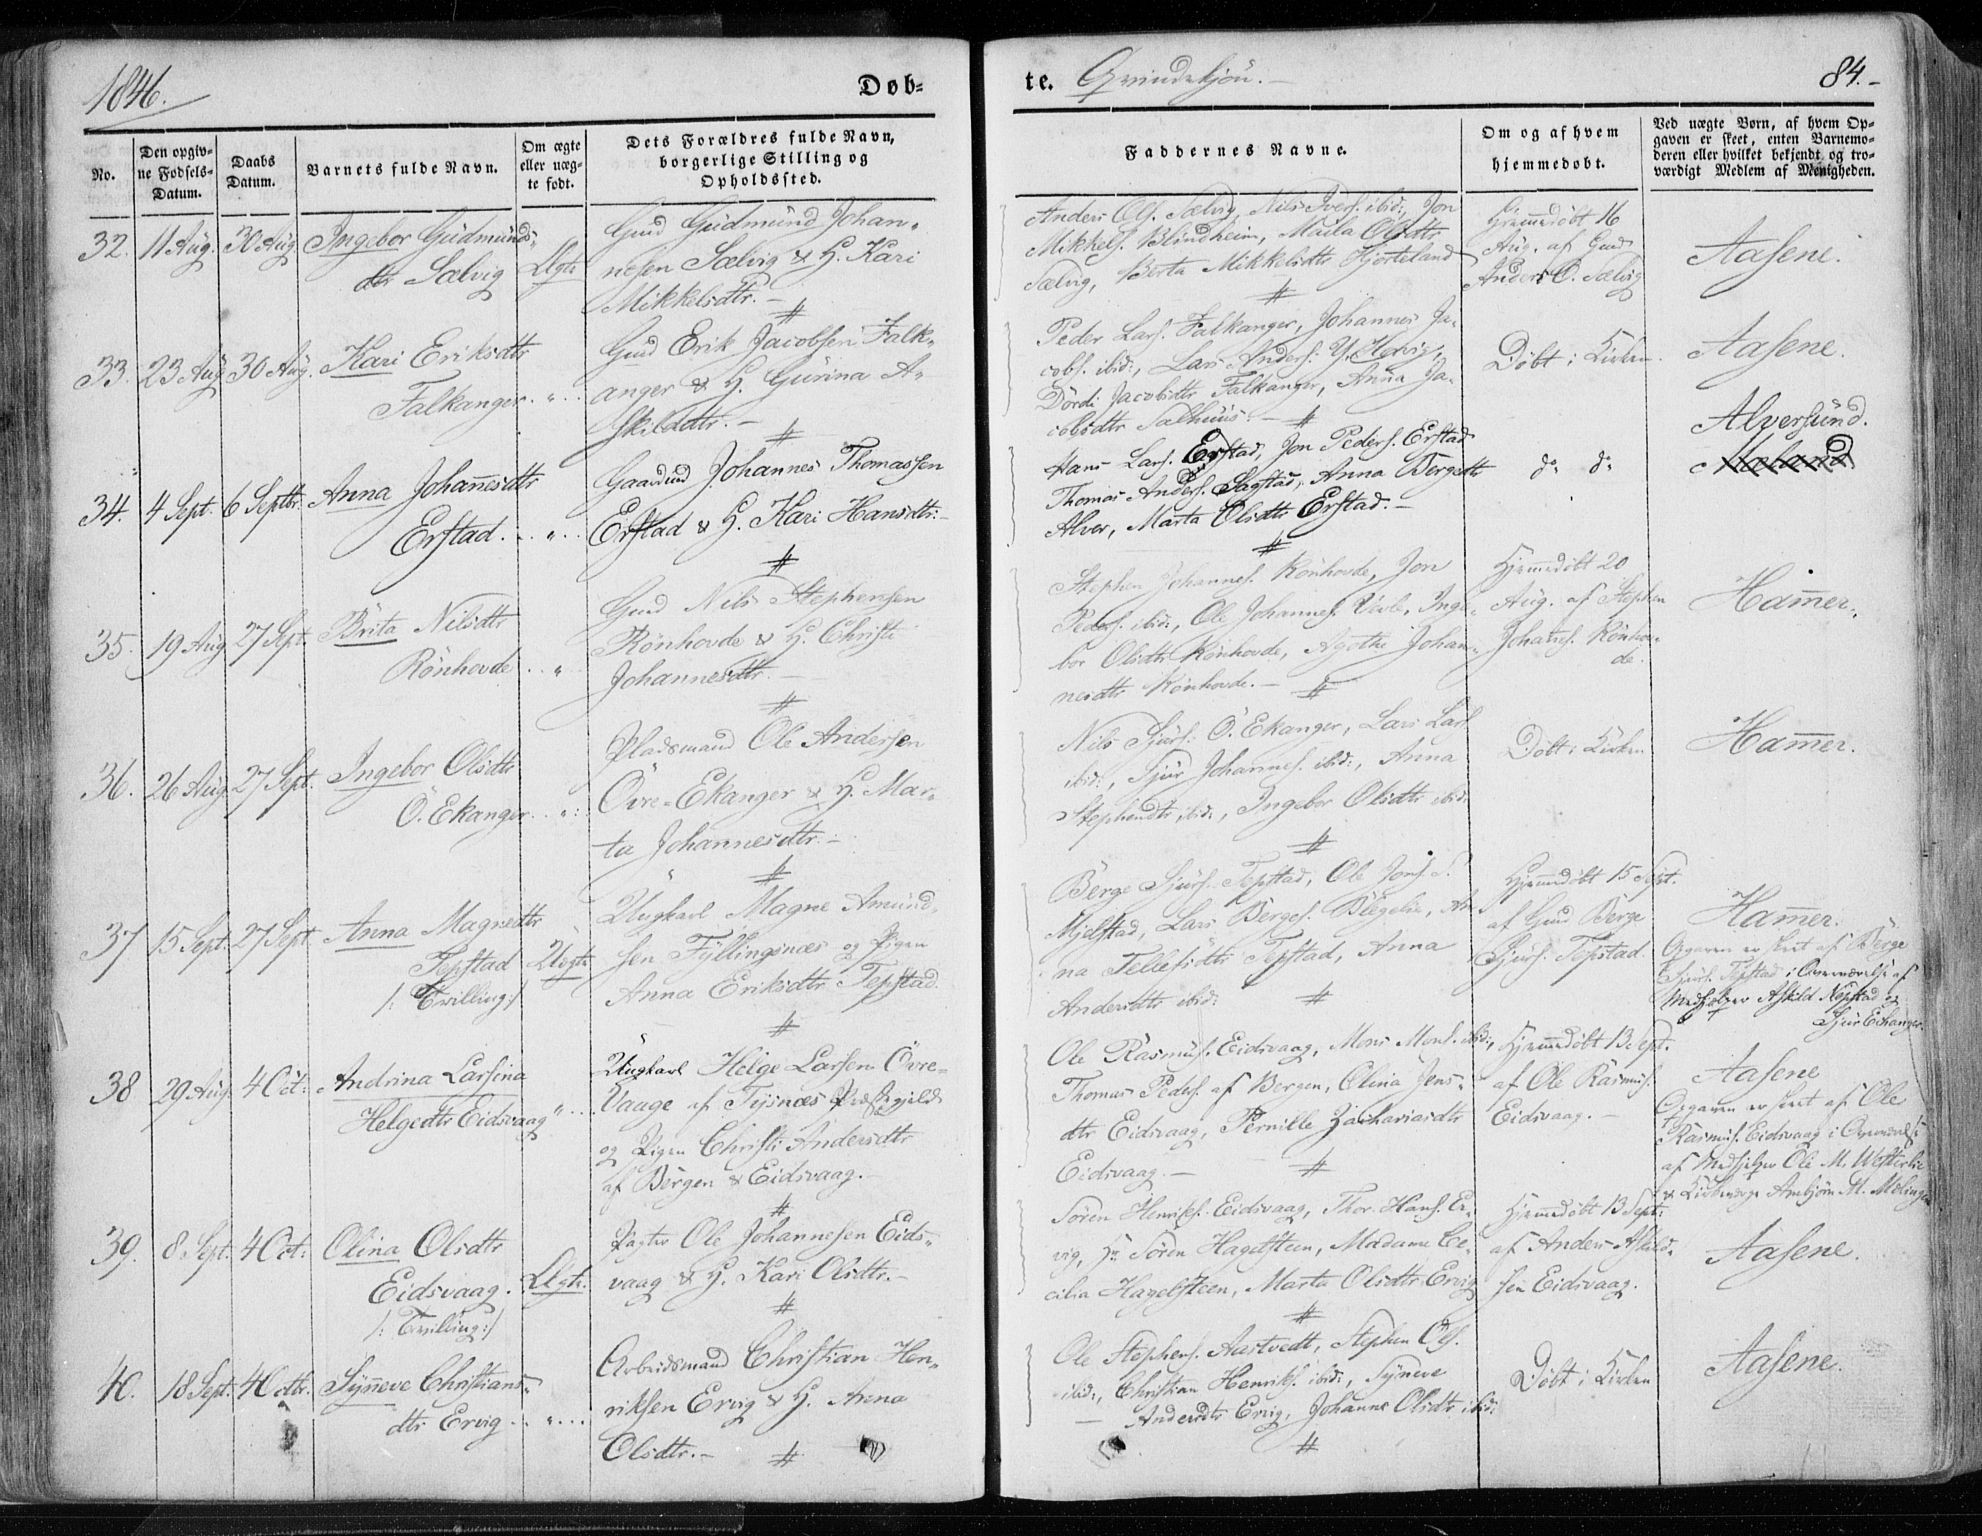 1846.
Døb-
te. Qvindekjön.
84.
No.
Den opgiv-
ne Fødsels-
Datum.
Daabs
Datum.
Barnets fulde Navn.
Om ægte
eller uæg-
te født.
Dets Forældres fulde Navn,
borgerlige Stilling og
Opholdssted.
Faddernes Navne.
Om og af hvem
hjemmedøbt.
Ved uægte Børn, af hvem Op-
gaven er skeet, enten Barnemo-
deren eller hvilket bekjendt og tro-
værdigt Medlem af Menigheden.
32. 11 Aug. 30 Aug. Ingebor Gudmunds-
dtr Sælvig Ægte
Gmd Gudmund Johan-
nesen Sælvig & H. Kari
Mikkelsdtr.
Anders Ols. Sælvig, Nils Ivers. ibid:, Jon
Mikkels. Blindheim, Maila Olsdtr
Sælvig, Berta Mikkelsdtr Hjorteland
Hjemmedöbt 16
Aug. af Gmd
Anders O. Sælvig
Aasene.
33. 23 Aug 30 Aug. Kari Eriksdtr
Falkanger
Gmd Erik Jacobsen Falk-
anger & H. Gurina A-
skilddtr.
Peder Lars. Falkanger, Johannes Ja-
cobs. ibid:, Lars Anders. Y. Hervig,
Dördi Jacobsdtr Falkanger, Anna Ja-
cobsdtr Salhuus.
Döbt i Kirken.
Aasene.
34. 4 Sept. 6 Septbr. Anna Johannesdtr
Erstad.
Gaardmd Johannes Thomassen
Erstad & H. Kari Hansdtr.
Hans Lars. Erstad, Jon Peders. Erstad
Thomas Anders. Sagstad, Anna Børgedtr
Alver, Marta Olsdtr Erstad.
do do
Alversund.
35. 19 Aug 27 Sept. Brita Nilsdtr
Rönhovde
Gmd Nils Stephensen
Rönhovde & H. Christi
Johannesdtr.
Stephen Johannes. Rönhovde, Jon
Peders. ibid:, Ole Johannes. Inge-
bor Olsdtr Rönhovde, Agothe Johan-
nesdtr Rönhovde.
Hjemmedöbt 20
Aug. af Stephen
Johans. Rönhov-
de.
Hammer.
36. 26 Aug. 27 Sept. Ingebor Olsdtr
Ö. Ekanger
Pladsmand Ole Andersen
Övre-Ekanger & H. Mar-
ta Johannesdtr.
Nils Sjurs. Ö. Ekanger, Lars Lars
ibid:, Sjur Johannes. ibid:, Anna
Stephendtr ibid:, Ingebor Olsdtr ibid:
Döbt i Kirken
Hammer.
37 15 Sept. 27 Sept. Anna Magnedtr
Tepstad Uægte
/: Tvilling:/
Ungkarl Magne Amund-
sen Fyllingsnæs og Pigen
Anna Eriksdtr Tepstad.
Børge Sjurs. Tepstad, Ole Jons. S.
Mjelstad, Lars Børges. An-
na Tellefsdtr Tepstad, Anna
Andersdtr ibid:
Hjemmedöbt 15 Sept.
af Gmd Børge
Sjurs. Tepstad.
Hammer.
Opgaven er skeet af Børge
Sjurs. Tepstad i Overværelse af
Medhjelper Askild Nepstad og
Sjur Echanger
38 29 Aug. 4 Oct: Andrina Larsina
Helgedtr Eidsvaag
Ungkarl Helge Larsen Övre-
Vaage af Tysnæs Præstegjeld
og Pigen Christi Andersdtr
af Bergen & Eidsvaag.
Ole Rasmus. Eidsvaag, Mons Mons. ibid:,
Thomas Peders. af Bergen, Olina Jens-
dtr Eidsvaag, Pernille Zachariasdtr
Eidsvaag.
Hjemmedöbt 13 Sept.
af Ole Rasmus.
Eidsvaag.
Aasene
Opgaven er skeet af Ole
Rasmus. Eidsvaag i Overværelse
af Medhjelper Ole M.
& Ambjörn M.
39. 8 Sept. 4 Oct: Olina Olsdtr
Eidsvaag. Ægte.
/: Tvilling:/
Pagter Ole Johannesen Eids-
vaag & H. Kari Olsdtr.
Sören Henriks. Eidsvaag, Thor. Hans. Er-
vig, Hr Sören Hagelsteen, Madame Ce-
cilia Hagelsteen, Marta Olsdtr Ervig
Hjemmedöbt 13 Sept:
af Anders Askild-
sen Eidsvaag.
Aasene.
40. 18 Sept. 4 Octbr. Syneve Christians-
dtr Ervig
Arbeidsmand Christian Hen-
riksen Ervig & H. Anna
Olsdtr.
Ole Stephens. Aastvedt, Stephen Ols.
ibid:, Christian Henriks. ibid:, Syneve
Andersdtr Ervig, Johanne Olsdtr ibid:
Döbt i Kirken
Aasene.